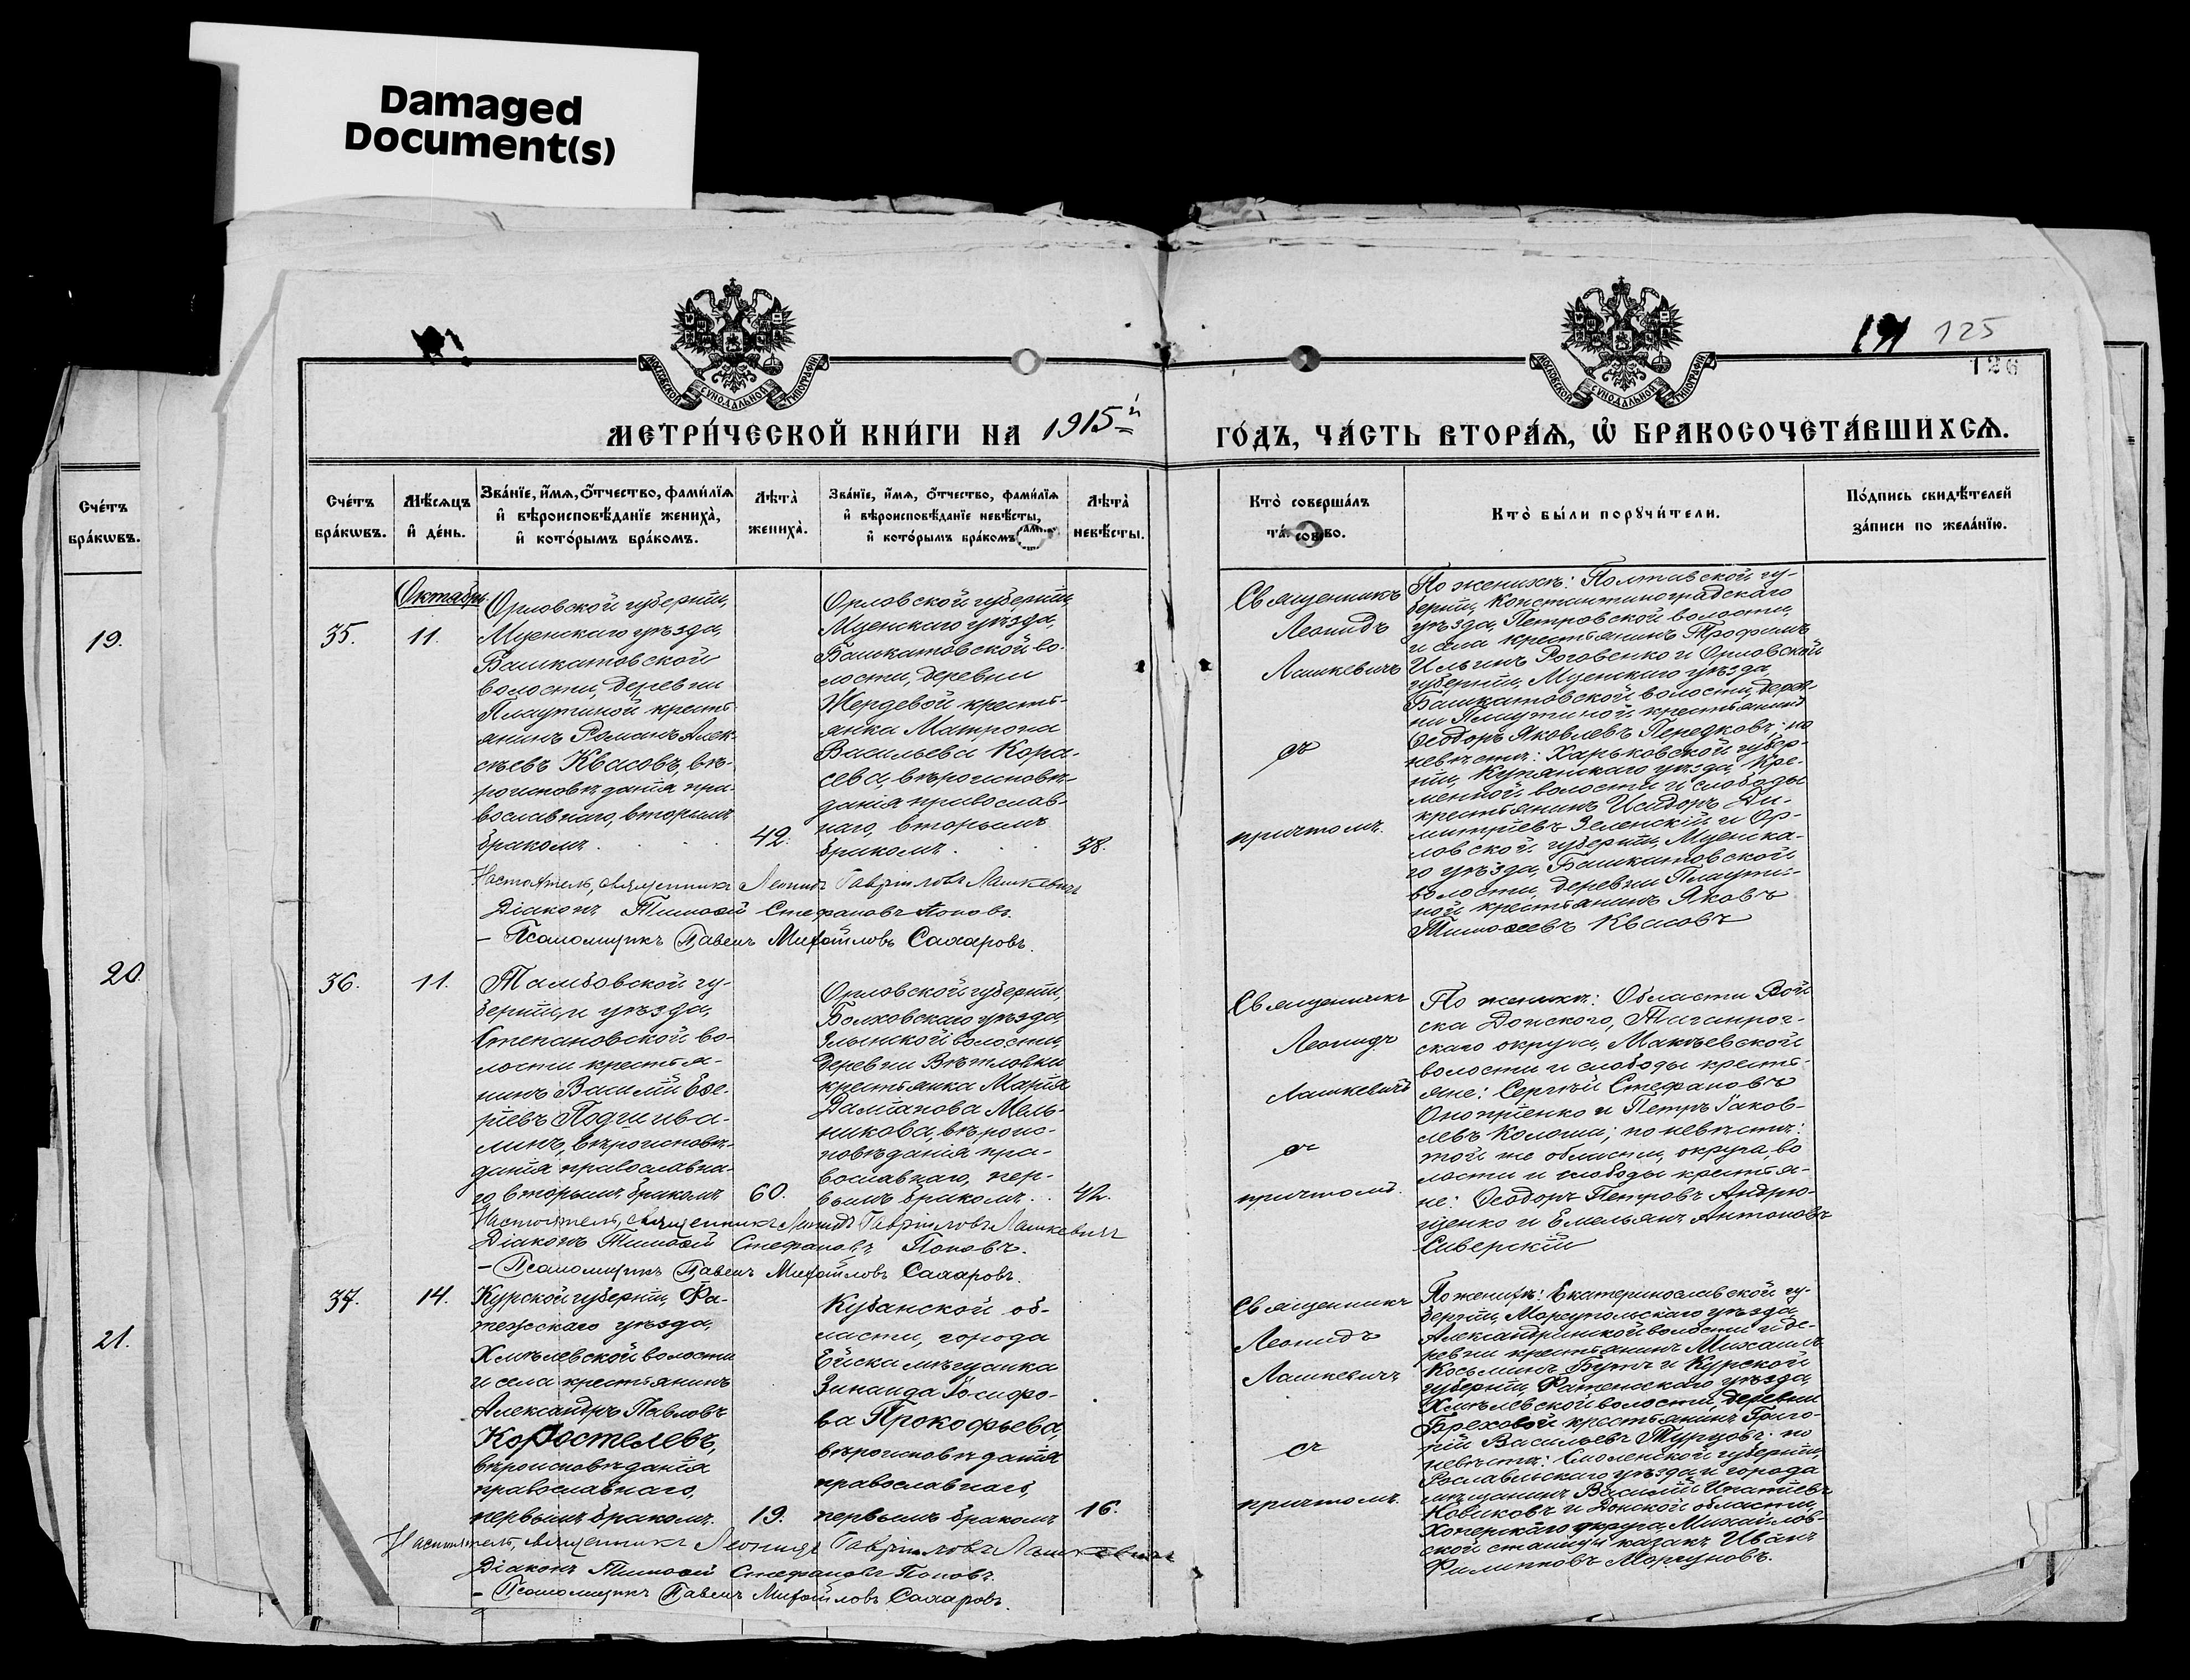 Damaged
Document(s)
125
126
МОСКОВСКОЙ СѴНОДАЛЬНОЙ ТИПОГРАФІИ
МОСКОВСКОЙ СѴНОДАЛЬНОЙ ТИПОГРАФІИ
МЕТРИ́ЧЕСКОЙ КНИ́ГИ НА 1915й ГО́ДЪ, ЧА́СТЬ ВТОРА́Ѧ, Ѡ БРАКОСОЧЕТА́ВШИХСѦ.
Сче́тъ
бра́кѡвъ.
19.
20.
21.
Сче́тъ
бра́кѡвъ.
Мѣ́сѧцъ
и҆ де́нь.
Зва́нїе, и҆́мѧ, ѻ҆́тчество, фами́лїѧ
и҆ вѣроисповѣ́данїе жениха̀,
и҆ кото́рымъ бра́комъ.
Лѣ́та̀
жениха̀.
Зва́нїе, и҆́мѧ, ѻ҆́тчество, фами́лїѧ
и҆ вѣроисповѣ́данїе невѣ́сты,
и҆ кото́рымъ бра́комъ
Лѣ́та̀
невѣ́сты.
Кто̀ соверша́лъ
Кто̀ бы́ли порꙋчи́тели.
По́дпись свидѣ́телей
за́писи по жела́нїю.
Октябрь
35.
11.
Орловской губерніи,
Мценскаго уѣзда,
Башкатовской
волости, деревни
Плаутиной кресть-
янинъ Романъ Алек-
сѣевъ Квасовъ, вѣ-
роисповѣданія пра-
вославнаго, вторымъ
бракомъ.
42.
Орловской губерніи,
Мценскаго уѣзда,
Башкатовской во-
лости, деревни
Жердевой кресть-
янка Матрона
Васильева Кора-
сева, вѣроисповѣ-
данія православ-
наго, вторымъ
бракомъ.
38.
Священникъ
Леонидъ
Лашкевичъ
съ
причтомъ.
По женихѣ: Полтавской гу-
берніи, Константиноградскаго
уѣзда, Петровской волости,
и села крестьянинъ Трофимъ
Ильинъ Роговенко и Орловской
губерніи, Мценскаго уѣзда,
Башкатовской волости, дерев-
ни Плаутиной крестьянинъ
Ѳеодоръ Яковлевъ Передковъ; по
невѣстѣ: Харьковской губер-
ніи, Купянскаго уѣзда, Кре-
менной волости и слободы
крестьянинъ Исидоръ Ди-
митріевъ Зеленскій и Ор-
ловской губерніи, Мценска-
го уѣзда, Башкатовской
волости, деревни Плаути-
ной крестьянинъ Яковъ
Тимоѳеевъ Квасовъ
Настоятель, священникъ Леонидъ Гавріиловъ Лашкевичъ
Діаконъ Тимоѳей Стефановъ Поповъ.
– Псаломщикъ Павелъ Михаиловъ Сахаровъ.
36.
11.
Тамбовской гу-
берніи, и уѣзда,
Степановской во-
лости крестья-
нинъ Василій
вѣроисповѣ-
данія православна-
го вторымъ бракомъ
60.
Орловской губерніи,
Болховскаго уѣзда,
волости,
деревни Вѣтловки
крестьянка Марія
Даміанова Мель-
никова, вѣроис-
повѣданія пра-
вославнаго, пер-
вымъ бракомъ.
42.
Священникъ
Леонидъ
Лашкевичъ
съ
причтомъ.
По женихѣ: Области Вой-
ска Донского, Таганрог-
скаго округа, Макѣевской
волости и слободы кресть-
яне: Сергѣй Стефановъ
Оноприенко и Петръ Іаков-
левъ Колоша; по невѣстѣ:
той же области, округа, во
лости и слободы крестья-
не: Ѳеодоръ Петровъ Андрю-
щенко и Емельянъ Антоновъ
Сиверскій
Настоятель, священникъ Леонидъ Гавріиловъ Лашкевичъ
Діаконъ Тимоѳей Стефановъ Поповъ.
– Псаломщикъ Павелъ Михаиловъ Сахаровъ.
37.
14.
Курской губерніи, Фа-
тежскаго уѣзда,
Хмѣлевской волости
и села крестьянинъ
Александръ Павловъ
Коростелевъ,
вѣроисповѣданія
православнаго,
первымъ бракомъ.
19.
Кубанской об-
ласти, города
Ейска мѣщанка
Зинаида Іосифо-
ва Прокофьева,
вѣроисповѣданія
православнаго,
первымъ бракомъ
16.
Священникъ
Леонидъ
Лашкевичъ
съ
причтомъ.
По женихѣ: Екатеринославской гу-
берніи, Маріупольскаго уѣзда,
Александринской волости и де-
ревни крестьянинъ Михаилъ
Косьминъ Бутъ и Курской
губерніи, Фатежскаго уѣзда,
Хмѣлевской волости, деревни
Бреховой крестьянинъ Григо-
рій Васильевъ Турцовъ; по
невѣстѣ: Смоленской губерніи,
Рославльскаго уѣзда и города
мѣщанинъ Василій Ипатіевъ
Новиковъ и Донской области,
Хоперскаго округа, Михайлов-
ской станицы казакъ Иванъ
Филипповъ Моргуновъ.
Настоятель, священникъ Леонидъ Гавріиловъ Лашкевичъ
Діаконъ Тимоѳей Стефановъ Поповъ.
– Псаломщикъ Павелъ Михаиловъ Сахаровъ.